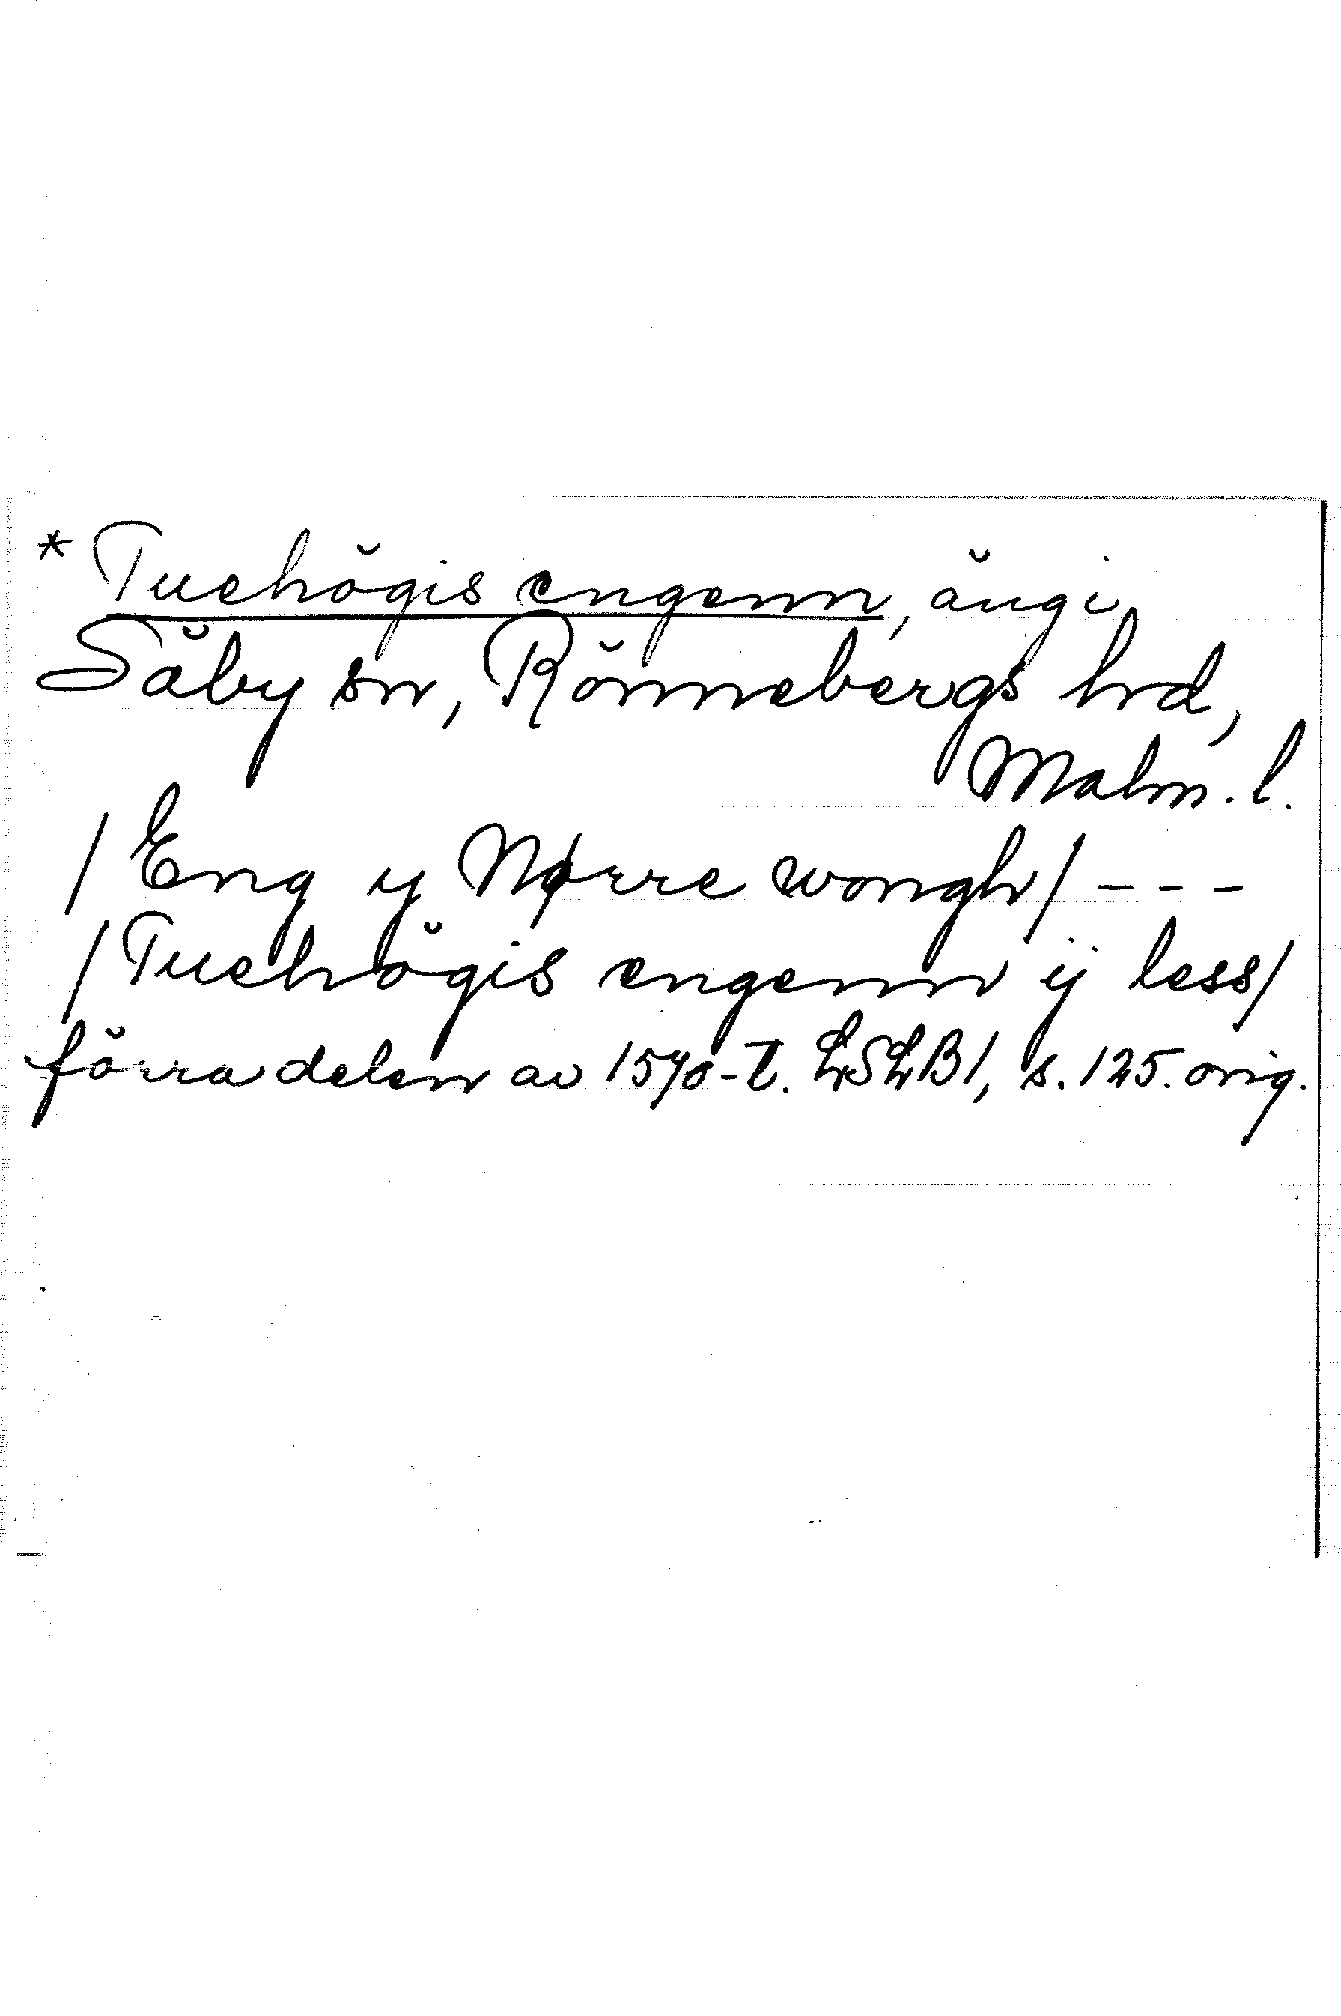 * Tuehögis engenn, äng i
Säby sn, Rönnebergs hd,
Malm. l.
/ Eng y Nørre wongh / - - -
/ Tuehögis engenn ij less /
förra delen av 1570-t. LSLB 1, s. 125. orig.